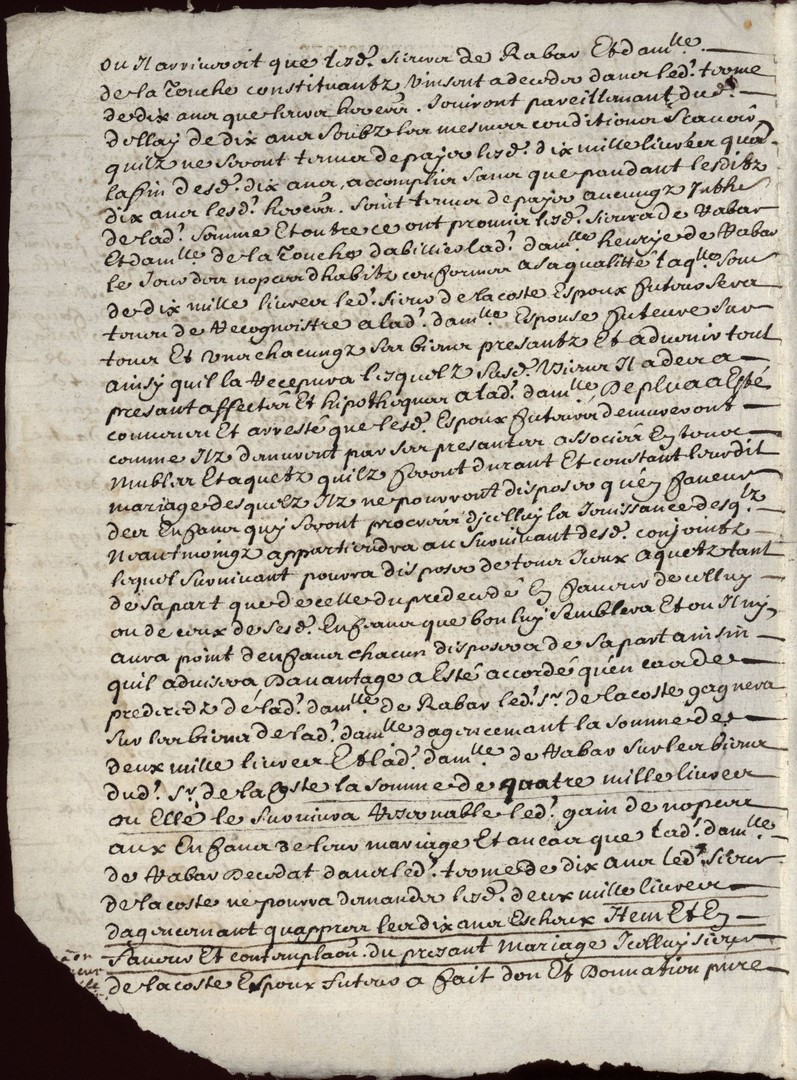 ou Il arriveroit que lesd. sieur de Rabar Et damlle
de la Touche constituantz vinsent a deceder dans led. terme
de dix ans que leurs heoers. seuront pareillement dud.
dellay de dix ans soubz les mesmes conditions scavoir
quilz ne seront tenus de payer lesd. dix mille livres qua
la fin desd. dix ans accomplis sans que pendant lesditz
dix ans lesd. heoers. soint tenus de payer aucungz Inthe
de lad. somme Et outre ce ont promis lesd. sieur de Rabar
Et damlle de la Touche dabillier lad. damlle henrye de Rabar
le Jour des nopces dhabitz conformes a sa quallitté laqlle some
de dix mille livres led. sieur de lacoste Espoux futeur sera
tenu de recognoistre a lad. damlle Espouse futeure sur
tous Et uns chacungz ses biens presantz Et advenir tout
ainsy quil la recepvra lesquelz susd. biens Il a des a
presant affectés Et hipothequés a lad. damlle De plus a Esté
convenu Et arresté que lesd. Espoux futeurs demureront
comme Ilz demuront par ses presantes associés En tous
mubles Et aquetz quilz feront durant Et constant leurdit
mariage desquelz Ilz ne pourront disposer qu'en faveur
des Enfans quy seront procreés dicelluy la Jouissance desqlz
neantmoingz appartiendra au survivant desd. conjointz
lequel survivant pourra disposer de tous Iceux aquetz tant
de sa part que de celle du predecedé En faveur de celluy
ou de ceux de sesd. Enfans que bon luy semblera Et ou Il ny
aura point denfans chacun disposera de sa part ainsin
quil advisera Davantage a Esté accordé qu'en cas de
predecedz de lad. damlle de Rabar led. sr. de lacoste gagnera
sur les biens de lad. damlle dagencemant la somme de
deux mille livres Et lad. damlle de Rabar sur les biens
dud. sr. de lacoste la somme de quatre mille livres
ou Elle le survivra Reversable led. gain de nopces
aux Enfans de leur mariage Et au cas que lad. damlle
de Rabar Decedat dans led. terme de dix ans led. sieur
de lacoste ne pourra demander lesd. deux mille livres
dagencemant quappres les dix ans Escheux Item Et En
faveur Et contemplaon du presant mariage Icelluy sieur
de lacoste Espoux futeur a fait don Et Donnation pure